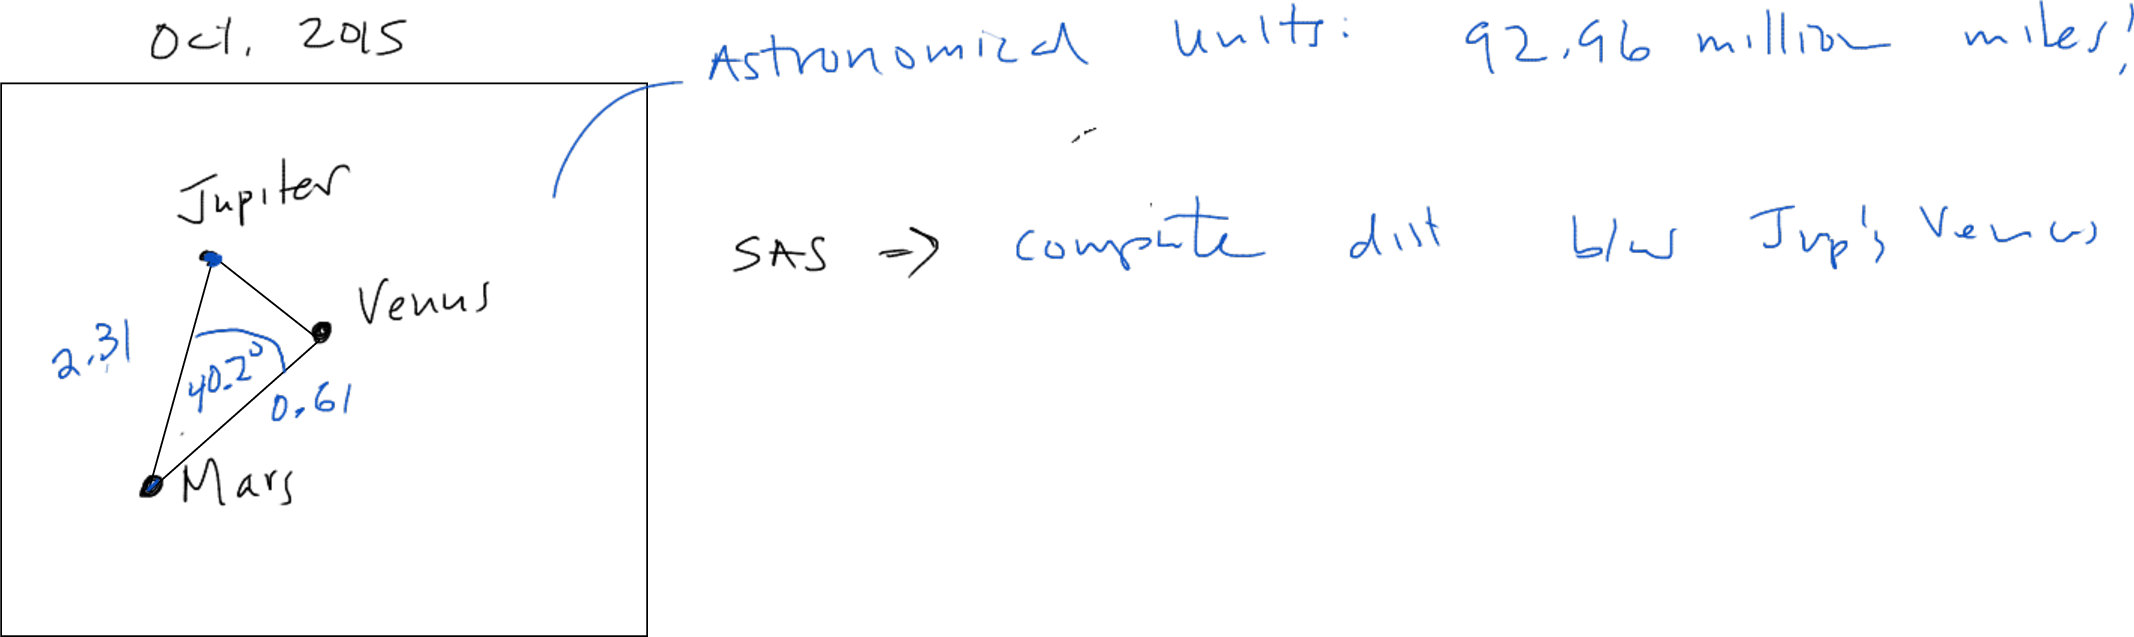 Oct. 2015
Astronomical Units: 92.96 million miles!
Jupiter
SAS => compute dist b/w Jup & Venus
Venus
2.31
40.2°
0.61
Mars